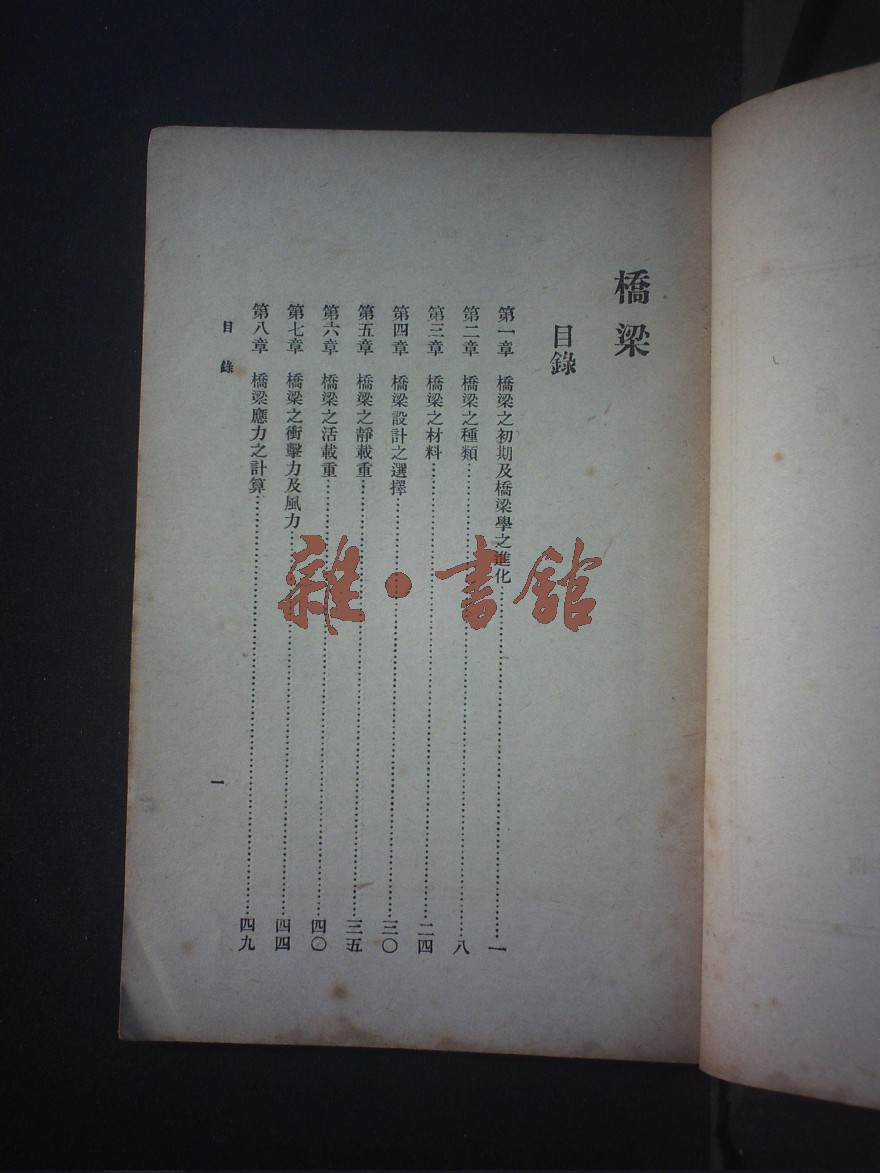 橋梁
目錄
第一章 橋梁之初期及橋梁學之進化……一
第二章 橋梁之種類……八
第三章 橋梁之材料……二四
第四章 橋梁設計之選擇……三〇
第五章 橋梁之靜載重……三五
第六章 橋梁之活載重……四〇
第七章 橋梁之衝擊力及風力……四四
第八章 橋梁應力之計算……四九
目錄
一
雜·書館